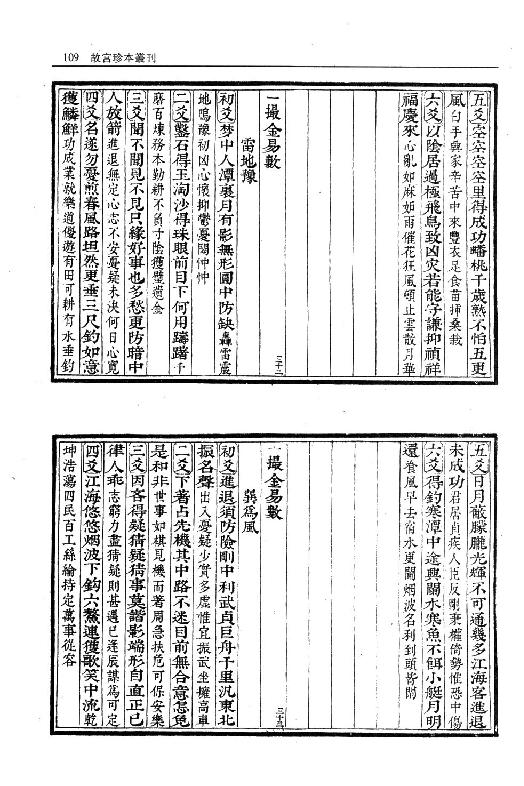 109 故宮珍本叢刊
五爻空空空空空里得成功蟠桃千歲熟不怕五更
風白手興家辛苦中來豐衣足食苗揷桑栽
六爻以陰居過極飛鳥致凶灾若能守謙抑禎祥
福慶來心亂如麻如雨催花狂風頓止雲散月華
一撮金易數
三十二
雷地豫
初爻梦中人潭裏月有影無形圓中防缺轟雷震
地鳴豫初凶心懷抑鬱憂悶忡忡
二爻鑿石得玉淘沙得珠眼前目下何用躊躇千
磨百煉務本勤耕不負寸陰獲鹽遺金
三爻聞不聞見不見只緣好事也多愁更防暗中
人放箭進退無定心志不安憂疑未決何日心寬
四爻名遂勿憂煎春風路坦然更垂三尺釣如意
獲鱗鮮功成業就樂道優遊有田可耕有水垂釣
五爻日月蔽朦朧光輝不可通幾多江海客進退
未成功君居自疾人臣反剛秉權倚勢惟恐中傷
六爻得釣寒潭中途興闌水寒魚不餌小艇月明
還養風早去宵水更闌烟波名利到頭皆閒
一撮金易數
三十三
巽爲風
初爻進退須防險剛中利武貞巨舟千里汎東北
振名聲出入憂疑少實多虛惟宜振武坐擁高車
二爻下著占先機其中路不迷目前無合意怎免
是和非世事如棋見機而著周急扶危可保安樂
三爻因吝得疑猜疑猜事莫諧影端形自直正己
律人乖志窮力盡猜疑則甚過已逹辰謀爲可定
四爻江海悠悠烟波下鈎六鰲連獲歌笑中流乾
坤浩蕩四民百工絲綸持定萬事從容